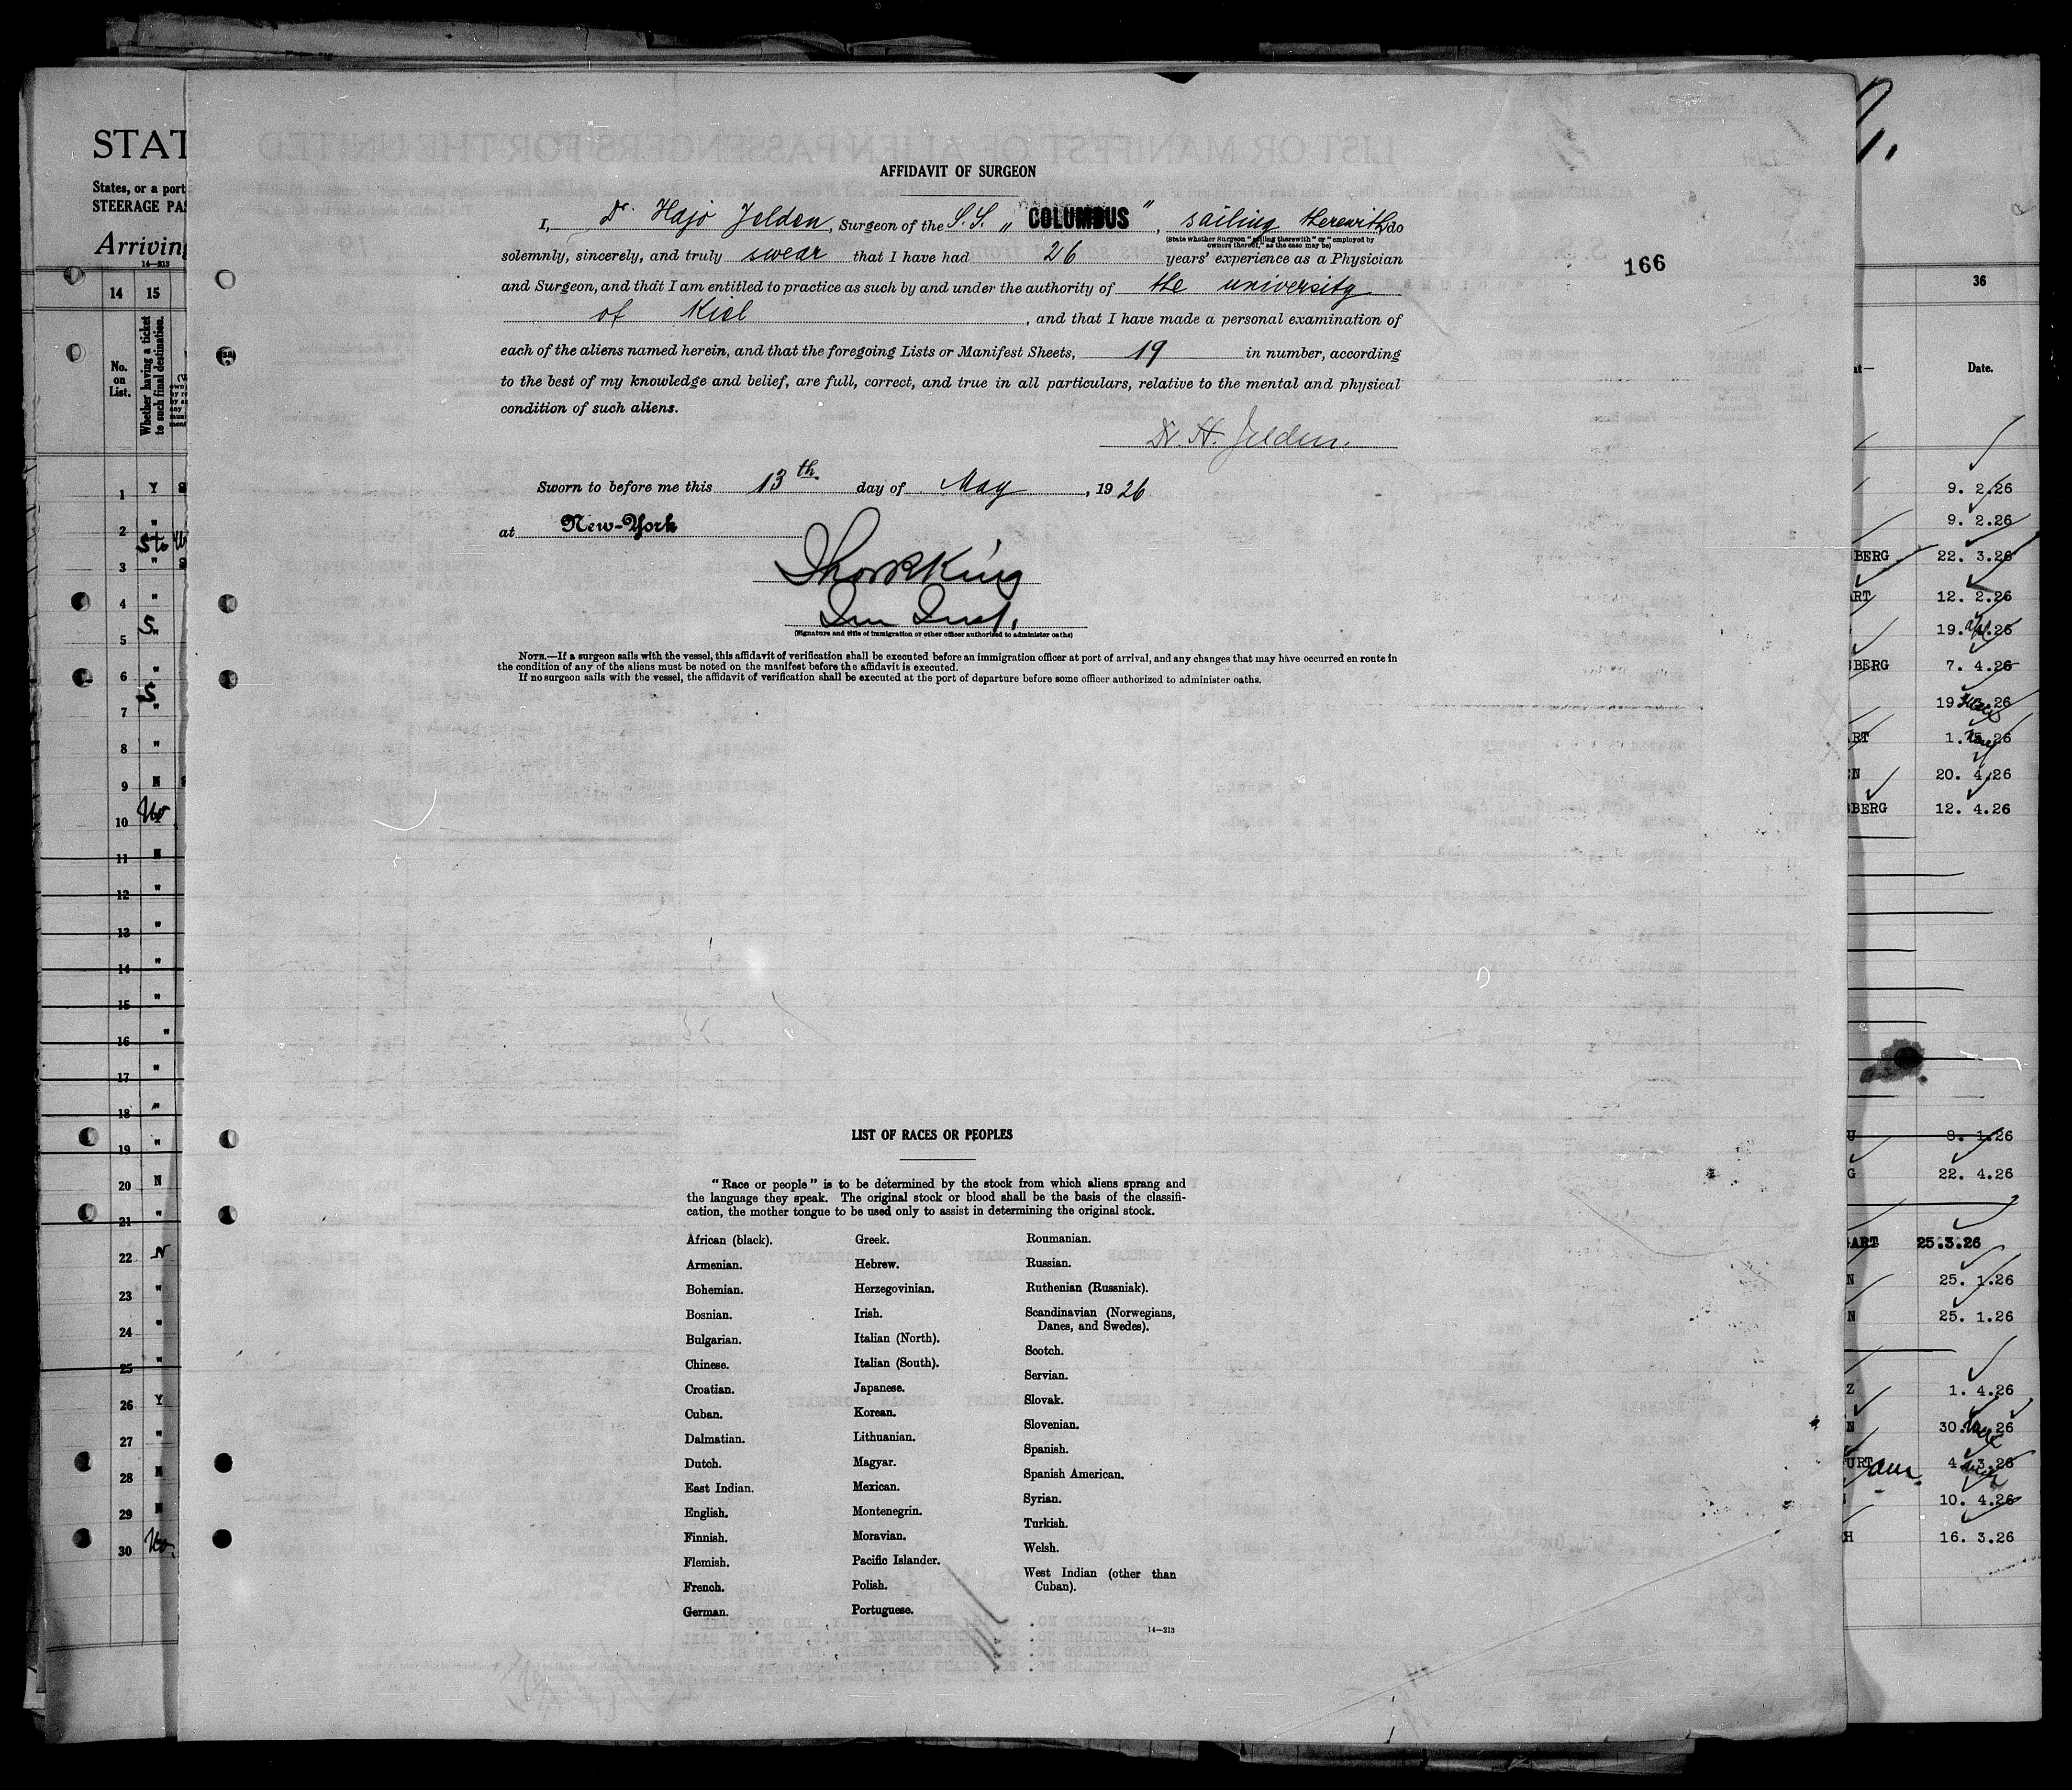 STAT
States, or a port
STEERAGE PA
Arriving
14—213
14 15
No. on List.
Whether having a ticket to such final destination.
1 Y
2 "
3 "
4 "
5 S "
6 "
7 S "
8 "
9 N
10 No
11 N
12 "
13 "
14 "
15 "
16 "
17 "
18 "
19 "
20 N
21 "
22 N
23 "
24 "
25 "
26 Y
27 "
28 N
29 N
30 No
AFFIDAVIT OF SURGEON
I, Dr. Hajo Jelden, Surgeon of the S.S. „ COLUMBUS ", sailing therewith do
(State whether Surgeon "sailing therewith" or "employed by
owners thereof," as the case may be)
solemnly, sincerely, and truly swear that I have had 26 years' experience as a Physician
and Surgeon, and that I am entitled to practice as such by and under the authority of the university
of Kiel, and that I have made a personal examination of
each of the aliens named herein, and that the foregoing Lists or Manifest Sheets, 19 in number, according
to the best of my knowledge and belief, are full, correct, and true in all particulars, relative to the mental and physical
condition of such aliens.
Dr. H. Jelden.
Sworn to before me this 13th day of May, 1926
at New-York
(Signature and title of immigration or other officer authorized to administer oaths)
NOTE.—If a surgeon sails with the vessel, this affidavit of verification shall be executed before an immigration officer at port of arrival, and any changes that may have occurred en route in
the condition of any of the aliens must be noted on the manifest before the affidavit is executed.
If no surgeon sails with the vessel, the affidavit of verification shall be executed at the port of departure before some officer authorized to administer oaths.
166
LIST OF RACES OR PEOPLES
"Race or people" is to be determined by the stock from which aliens sprang and
the language they speak. The original stock or blood shall be the basis of the classifi-
cation, the mother tongue to be used only to assist in determining the original stock.
African (black).
Armenian.
Bohemian.
Bosnian.
Bulgarian.
Chinese.
Croatian.
Cuban.
Dalmatian.
Dutch.
East Indian.
English.
Finnish.
Flemish.
French.
German.
Greek.
Hebrew.
Herzegovinian.
Irish.
Italian (North).
Italian (South).
Japanese.
Korean.
Lithuanian.
Magyar.
Mexican.
Montenegrin.
Moravian.
Pacific Islander.
Polish.
Portuguese.
Roumanian.
Russian.
Ruthenian (Russniak).
Scandinavian (Norwegians,
Danes, and Swedes).
Scotch.
Servian.
Slovak.
Slovenian.
Spanish.
Spanish American.
Syrian.
Turkish.
Welsh.
West Indian (other than
Cuban).
14—213
36
at—
Date.
9. 2.26
9. 2.26
BERG 22. 3.26
ART 12. 2.26
19. 26
SBERG 7. 4.26
19 26
ART 1. 26
EN 20. 4.26
SBERG 12. 4.26
U 8. 1.26
G 22. 4.26
ART 25.3.26
N 25. 1.26
N 25. 1.26
Z 1. 4.26
N 30. 26
URT 4. 3.26
10. 4.26
H 16. 3.26